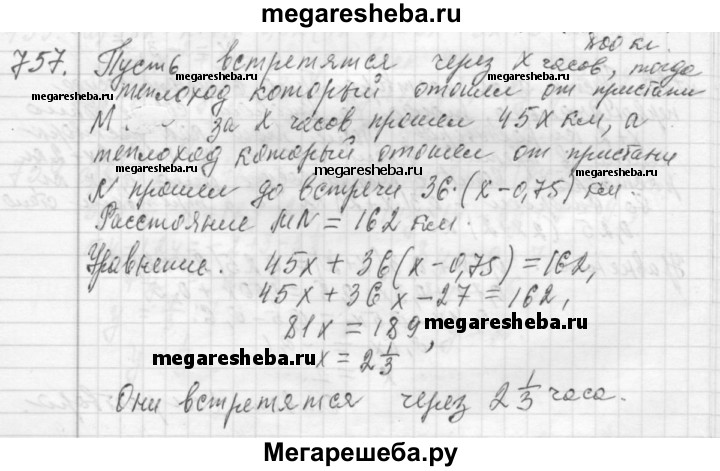 megaresheba.ru
200 кг.
757. Пусть встретятся через x часов, тогда
megaresheba.ru megaresheba.ru
теплоход который отошел от пристани
M. - за x часов прошел 45x км, а
теплоход который отошел от пристани
megaresheba.ru megaresheba.ru
N прошел до встречи 36·(x-0,75) км.
Расстояние MN = 162 км.
Уравнение. 45x + 36(x-0,75) = 162,
45x + 36x - 27 = 162,
81x = 189, megaresheba.ru
megaresheba.ru x = 2 1/3
Они встретятся через 2 1/3 часа.
Мегарешеба.ру